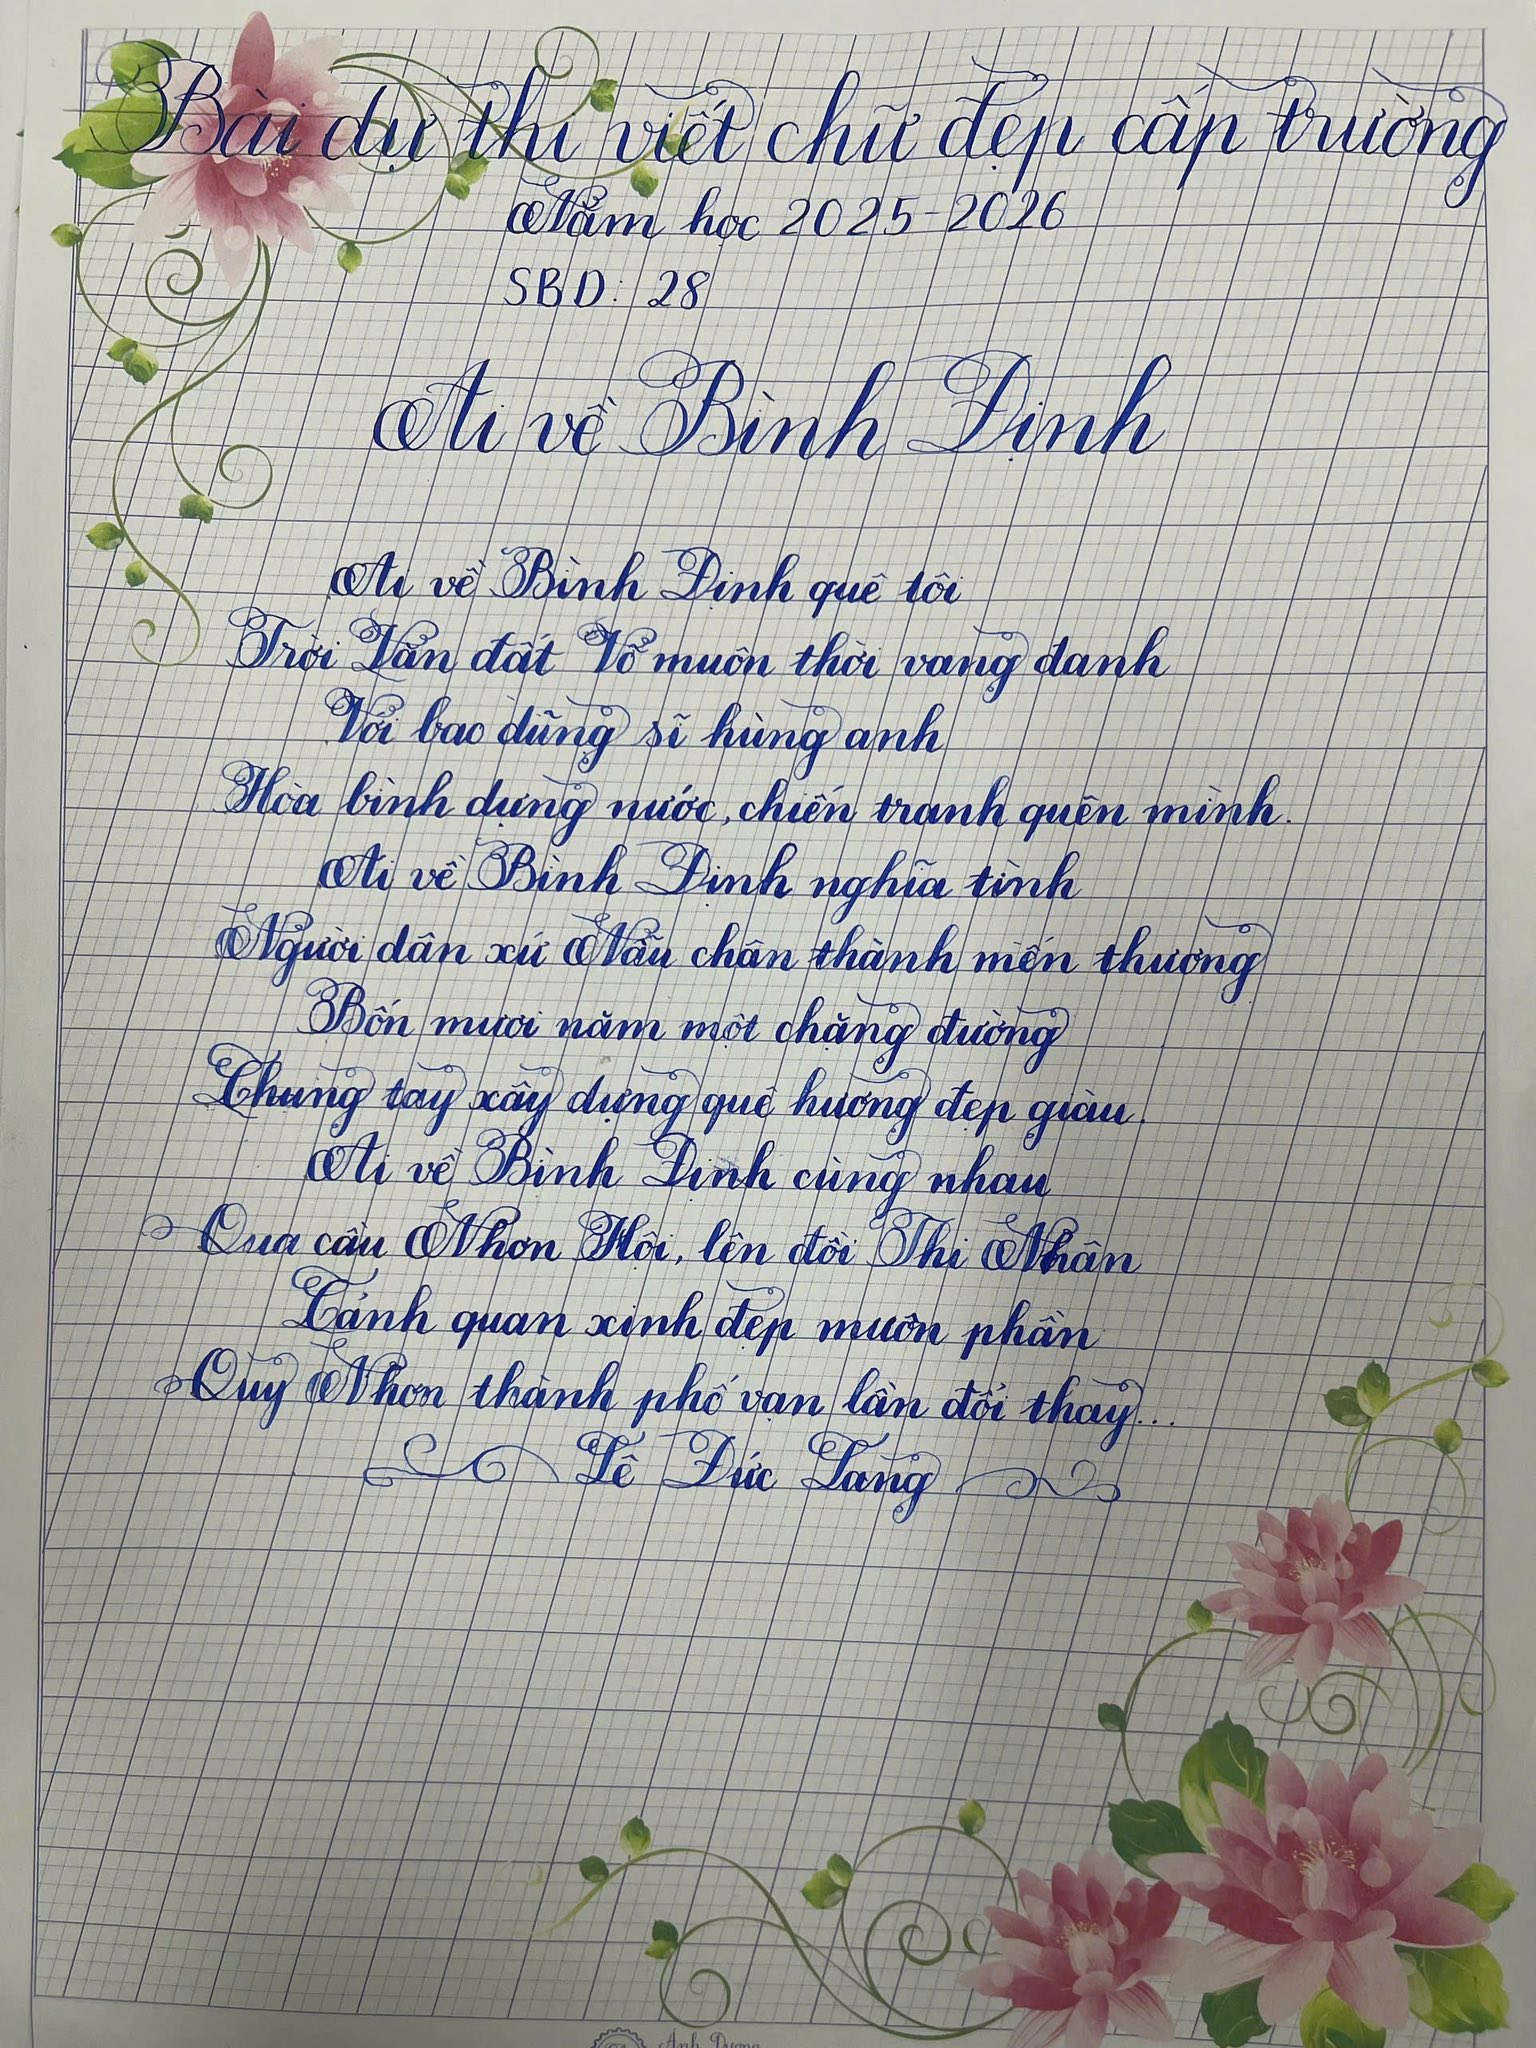 Bài dự thi viết chữ đẹp cấp trường
Năm học 2025-2026
SBD: 28
Ai về Bình Định
Ai về Bình Định quê tôi
Trời Văn đất Võ muôn thời vang danh
Với bao dũng sĩ hùng anh
Hòa bình dựng nước, chiến tranh quên mình.
Ai về Bình Định nghĩa tình
Người dân xứ Nẫu chân thành mến thương
Bốn mươi năm một chặng đường
Chung tay xây dựng quê hương đẹp giàu.
Ai về Bình Định cùng nhau
Qua cầu Nhơn Hội, lên đồi Thi Nhân
Cảnh quan xinh đẹp muôn phần
Quy Nhơn thành phố vạn lần đổi thay...
Lê Đức Lang
Ánh Dương